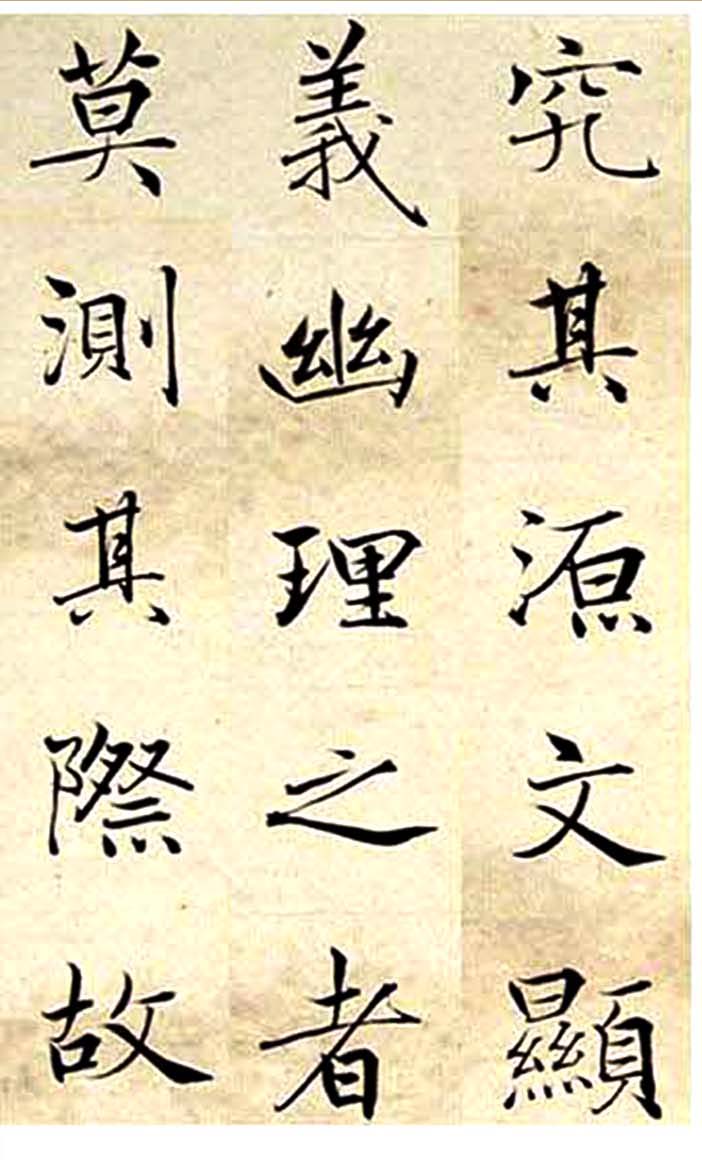 究其源文顯
義幽理之者
莫測其際故